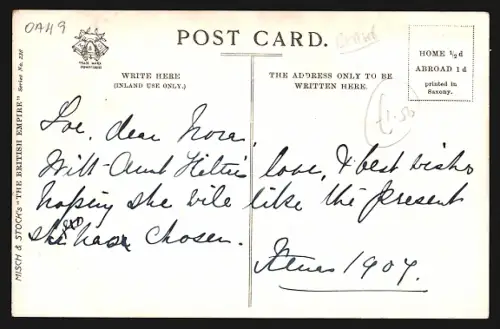 OA49
POST CARD.
TRADE MARK
WRITE HERE
(INLAND USE ONLY.)
THE ADDRESS ONLY TO BE
WRITTEN HERE.
HOME ½d
ABROAD 1d
printed in
Saxony.
MISCH & STOCK'S "THE BRITISH EMPIRE" Series No. 220
£1.50
dear Nora,
With Aunt love, & best wishes
hoping she will like the present
she has chosen.
Xmas 1907.